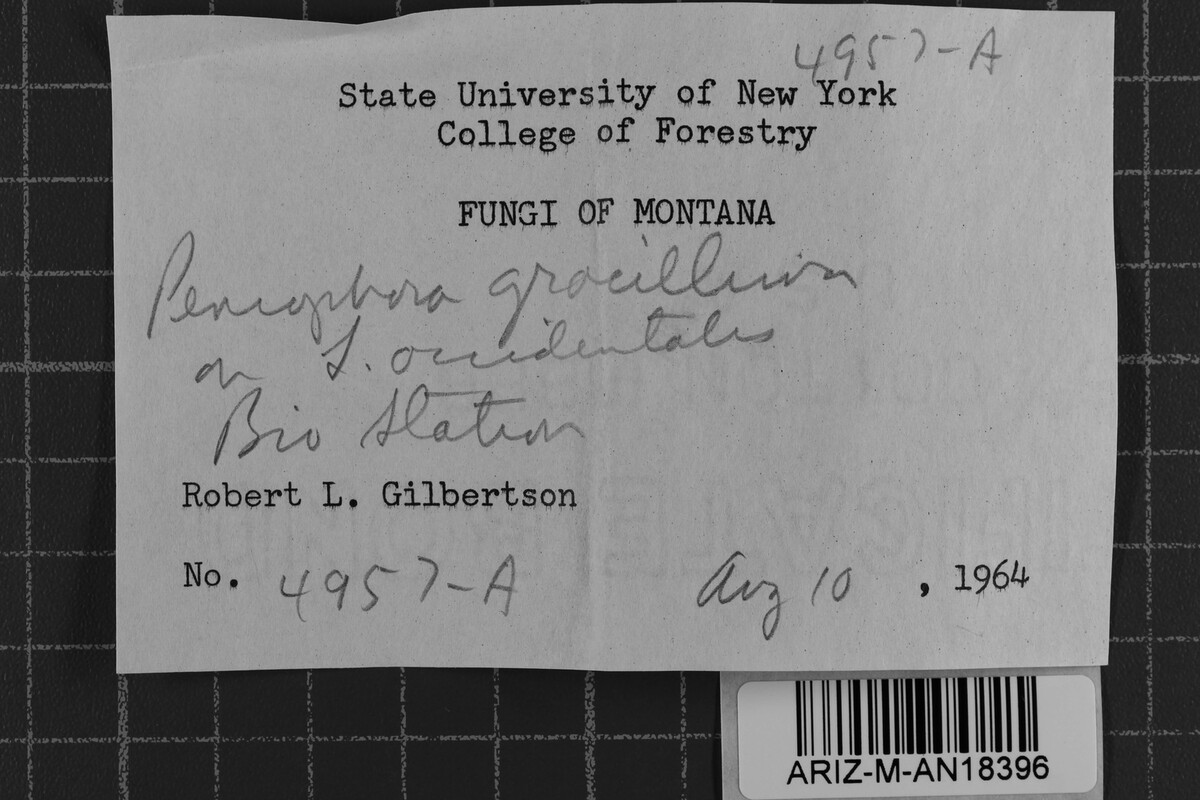 4957-A
State University of New York
College of Forestry
FUNGI OF MONTANA
Peniophora gracillima
on L. occidentalis
Bio Station
Robert L. Gilbertson
No. 4957-A Aug 10 , 1964
ARIZ-M-AN18396